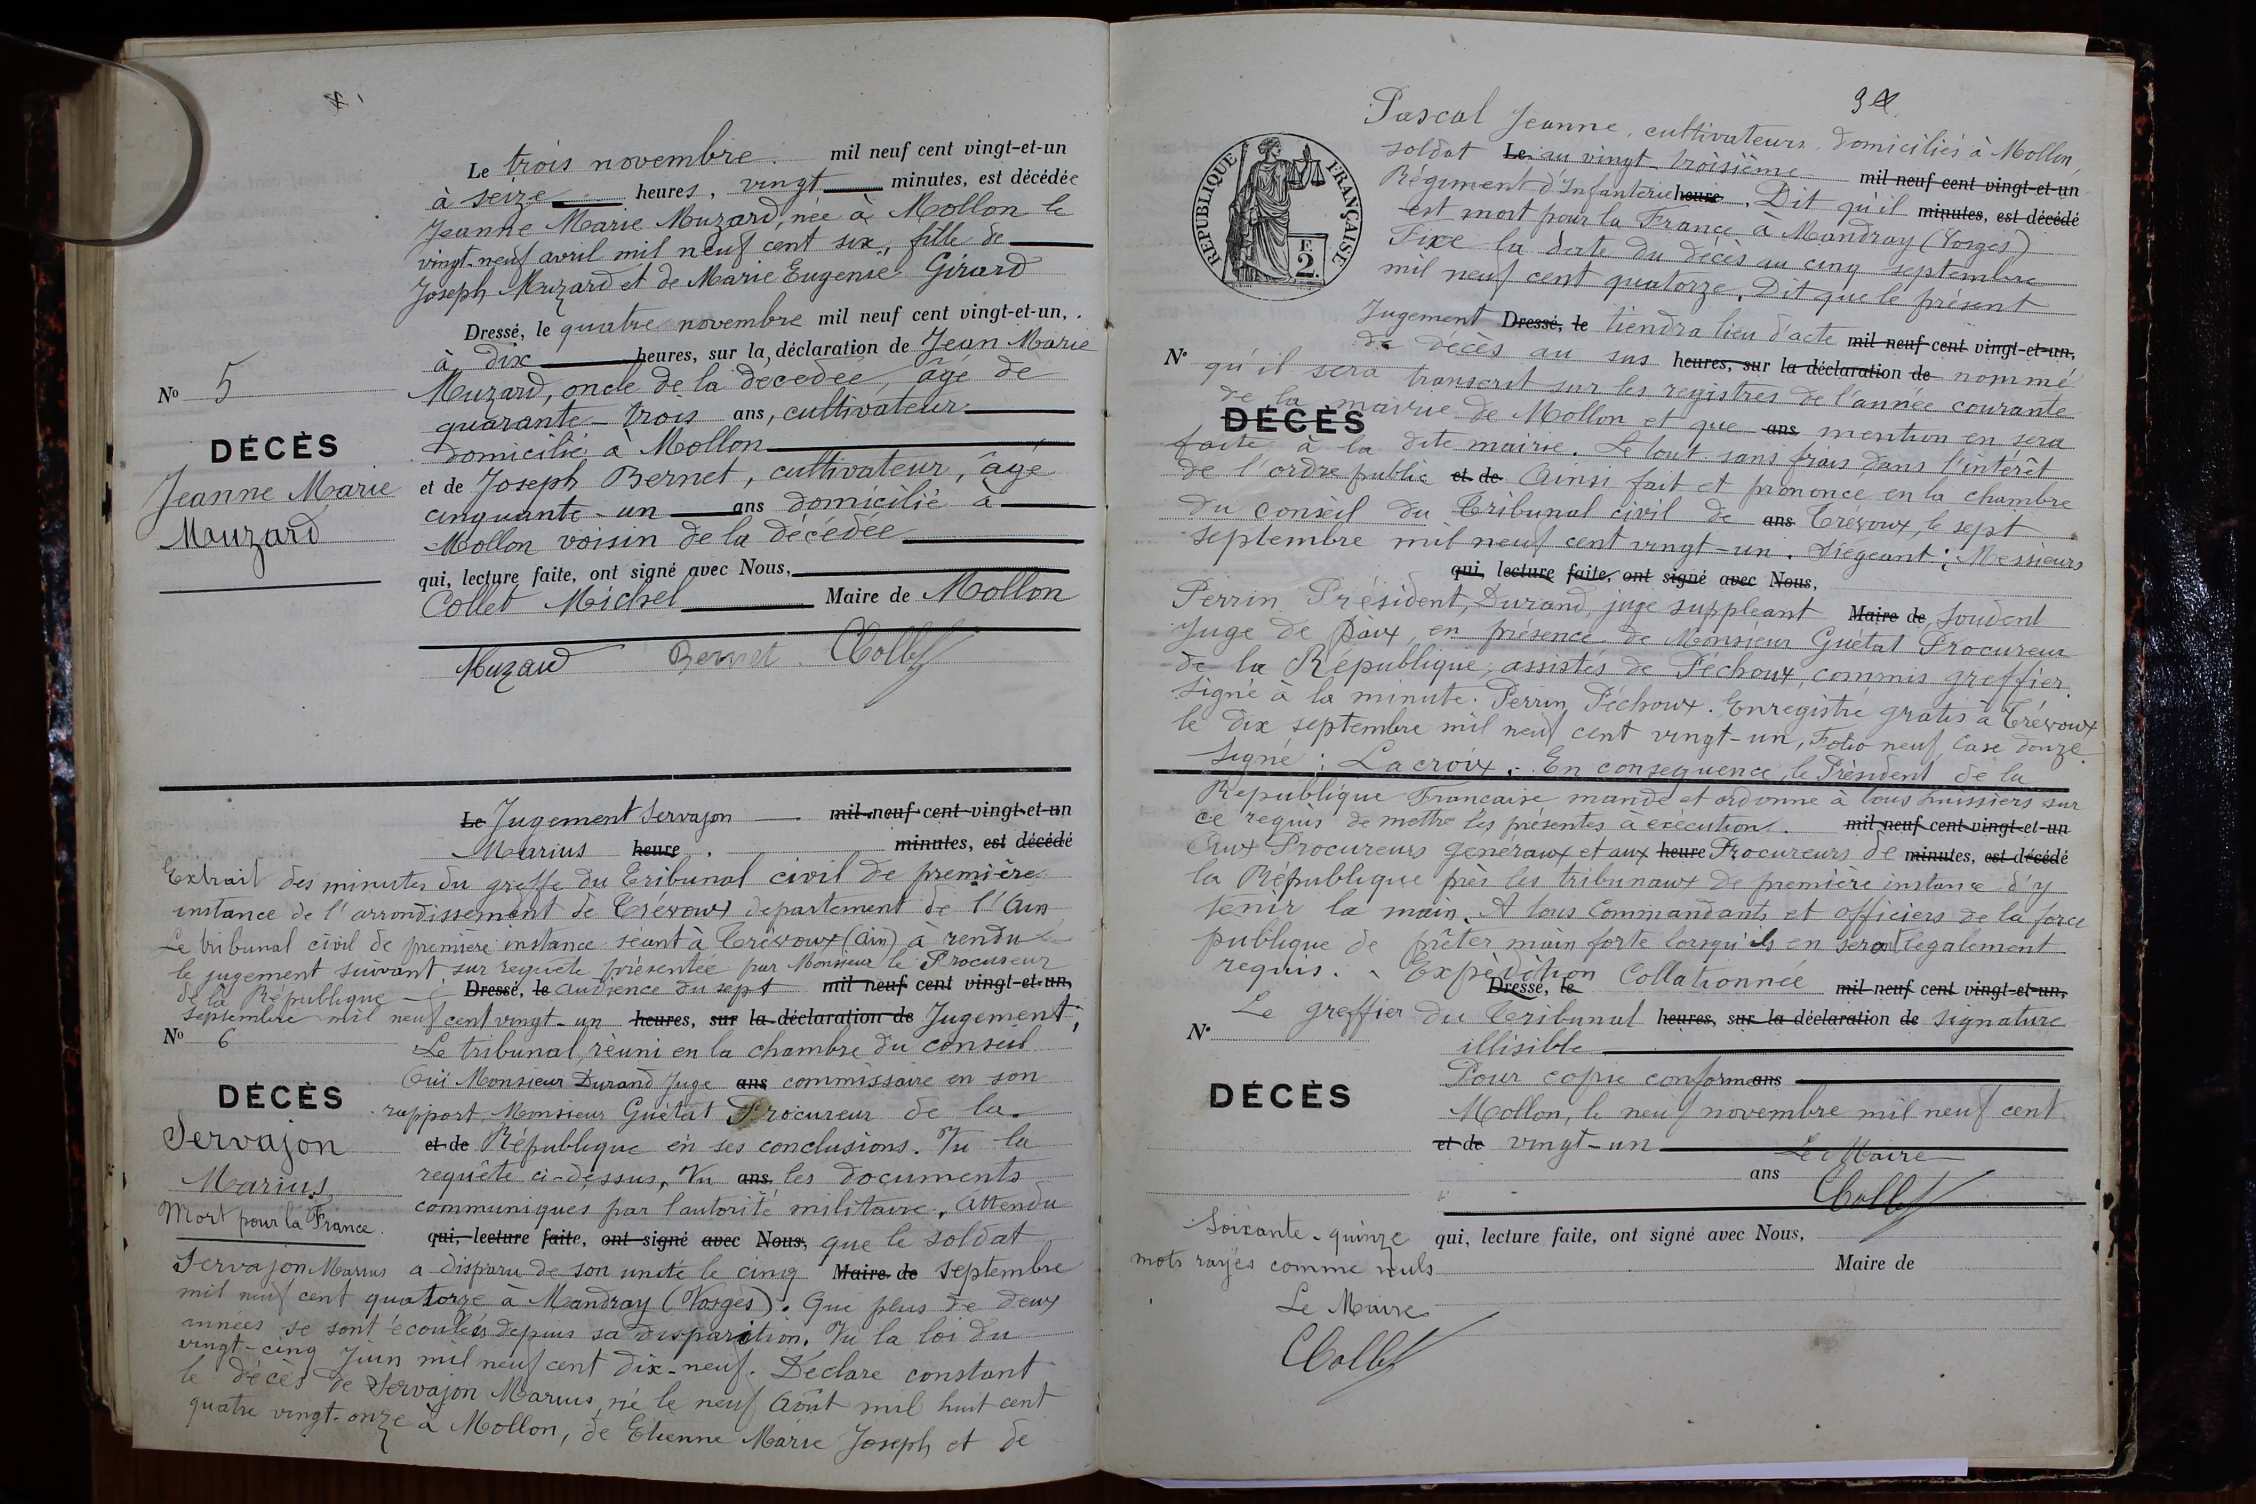 Le trois novembre mil neuf cent vingt-et-un
à seize heures, vingt minutes, est décédée
Jeanne Marie Muzard, née à Mollon le
vingt-neuf avril mil neuf cent six, fille de
Joseph Muzard et de Marie Eugenie Girard
Dressé, le quatre novembre mil neuf cent vingt-et-un,
à dix heures, sur la déclaration de Jean Marie
Muzard, oncle de la décédée, âgé de
quarante-trois ans, cultivateur
domicilié à Mollon
et de Joseph Bernet, cultivateur, âgé
cinquante-un ans domicilié à
Mollon voisin de la décédée
qui, lecture faite, ont signé avec Nous,
Collet Michel Maire de Mollon
Muzard Bernet Collet
No 5
DÉCÈS
Jeanne Marie
Muzard
Le Jugement Servajon mil neuf cent vingt-et-un
Marius heure. minutes, est décédé
Extrait des minutes du greffe du Tribunal civil de première
instance de l'arrondissement de Trévoux departement de l'Ain
Le tribunal civil de première instance séant à Trévoux (Ain) à rendu
le jugement suivant sur requête présentée par Monsieur le Procureur
de la République Dressé, le audience du sept mil neuf cent vingt-et-un,
septembre mil neuf cent vingt-un heures, sur la déclaration de Jugement;
No 6
Le tribunal, réuni en la chambre du conseil
Ouï Monsieur Durand Juge ans commissaire en son
rapport, Monsieur Guétat Procureur de la
et de République en ses conclusions. Vu la
requête ci-dessus, Vu ans les documents
communiques par l'autorité militaire, Attendu
qui, lecture faite, ont signé avec Nous, que le soldat
DÉCÈS
Servajon
Marius
Mort pour la France
Servajon Marius a disparu de son unité le cinq Maire de septembre
mil neuf cent quatorze à Mandray (Vosges). Que plus de deux
années se sont écoulées depuis sa disparition. Vu la loi du
vingt-cinq Juin mil neuf cent dix-neuf. Déclare constant
le décès de Servajon Marius, né le neuf Août mil huit cent
quatre vingt-onze à Mollon, de Etienne Marie Joseph et de
RÉPUBLIQUE FRANÇAISE
F
2
Pascal Jeanne, cultivateurs domiciliés à Mollon,
soldat Le au vingt troisième mil neuf cent vingt-et-un
Régiment d'Infanterie heure. Dit qu'il minutes, est décédé
est mort pour la France à Mandray (Vosges)
Fixe la date du décès au cinq septembre
mil neuf cent quatorze. Dit que le présent
Jugement Dressé, le tiendra lieu d'acte mil neuf cent vingt-et-un,
No de décès au sus heures, sur la déclaration de nommé
qu'il sera transcrit sur les registres de l'année courante
de la mairie de Mollon et que ans mention en sera
DÉCÈS
faite à la dite mairie. Le tout sans frais dans l'intérêt
de l'ordre public et de Ainsi fait et prononcé en la chambre
du conseil du Tribunal civil de ans Trévoux, le sept
septembre mil neuf cent vingt-un. Siégeant: Messieurs
qui, lecture faite, ont signé avec Nous,
Perrin Président, Durand, juge suppléant Maire de Soudent
Juge de Paix, en présence de Monsieur Guétat Procureur
de la République, assistés de Féchoux, commis greffier.
Signé à la minute: Perrin Féchoux. Enregistré gratis à Trévoux
le dix septembre mil neuf cent vingt-un, Folio neuf Case douze
Signé: Lacroix. En consequence, le Président de la
République Française mande et ordonne à tous huissiers sur
ce requis de mettre les présentes à exécution. mil neuf cent vingt-et-un
Aux Procureurs généraux et aux heure Procureurs de minutes, est décédé
la République près les tribunaux de première instance d'y
tenir la main. A tous Commandants et officiers de la force
publique de prêter main forte lorsqu'ils en seront legalement
requis. Expédition Collationnée
Dressé, le mil neuf cent vingt-et-un,
Le greffier du Tribunal heures, sur la déclaration de signature
No
illisible
Pour copie conforme ans
DÉCÈS
Mollon, le neuf novembre mil neuf cent
et de vingt-un
Le Maire
ans
Collet
qui, lecture faite, ont signé avec Nous,
Maire de
Soixante-quinze
mots rayés comme nuls
Le Maire
Collet